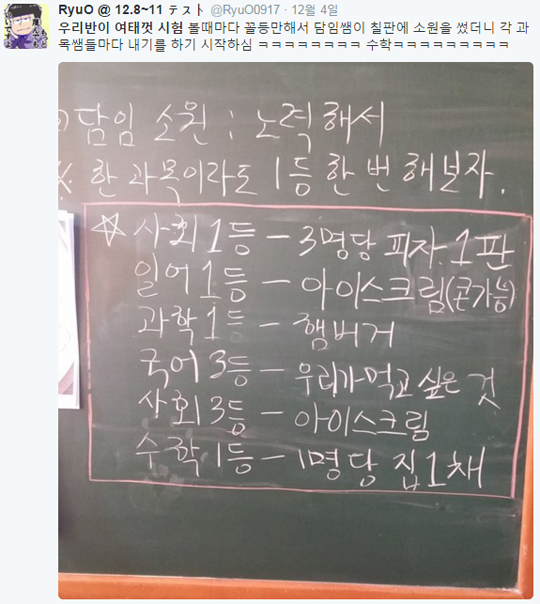 RyuO @ 12.8~11 テスト @RyuO0917 · 12월 4일
우리반이 여태껏 시험 볼때마다 꼴등만해서 담임쌤이 칠판에 소원을 썼더니 각 과
목쌤들마다 내기를 하기 시작하심 ㅋㅋㅋㅋㅋㅋㅋㅋ 수학ㅋㅋㅋㅋㅋㅋㅋㅋㅋ
담임 소원 : 노력해서
※ 한 과목이라도 1등 한 번 해보자.
☆ 사회 1등 - 3명당 피자 1판
일어 1등 - 아이스크림(콘가능)
과학 1등 - 햄버거
국어 3등 - 우리가 먹고 싶은 것
사회 3등 - 아이스크림
수학 1등 - 1명당 집 1채